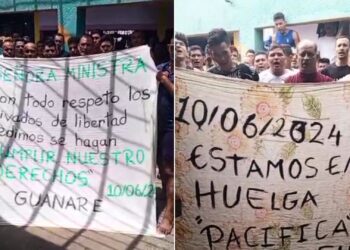 SEÑORA MINISTRA
con todo respeto los
privados de libertad
pedimos se hagan
CUMPLIR NUESTRO
DERECHOS"
GUANARE 10/06/2
10/06/2024
ESTAMOS EN
HUELGA
"PACIFICA"